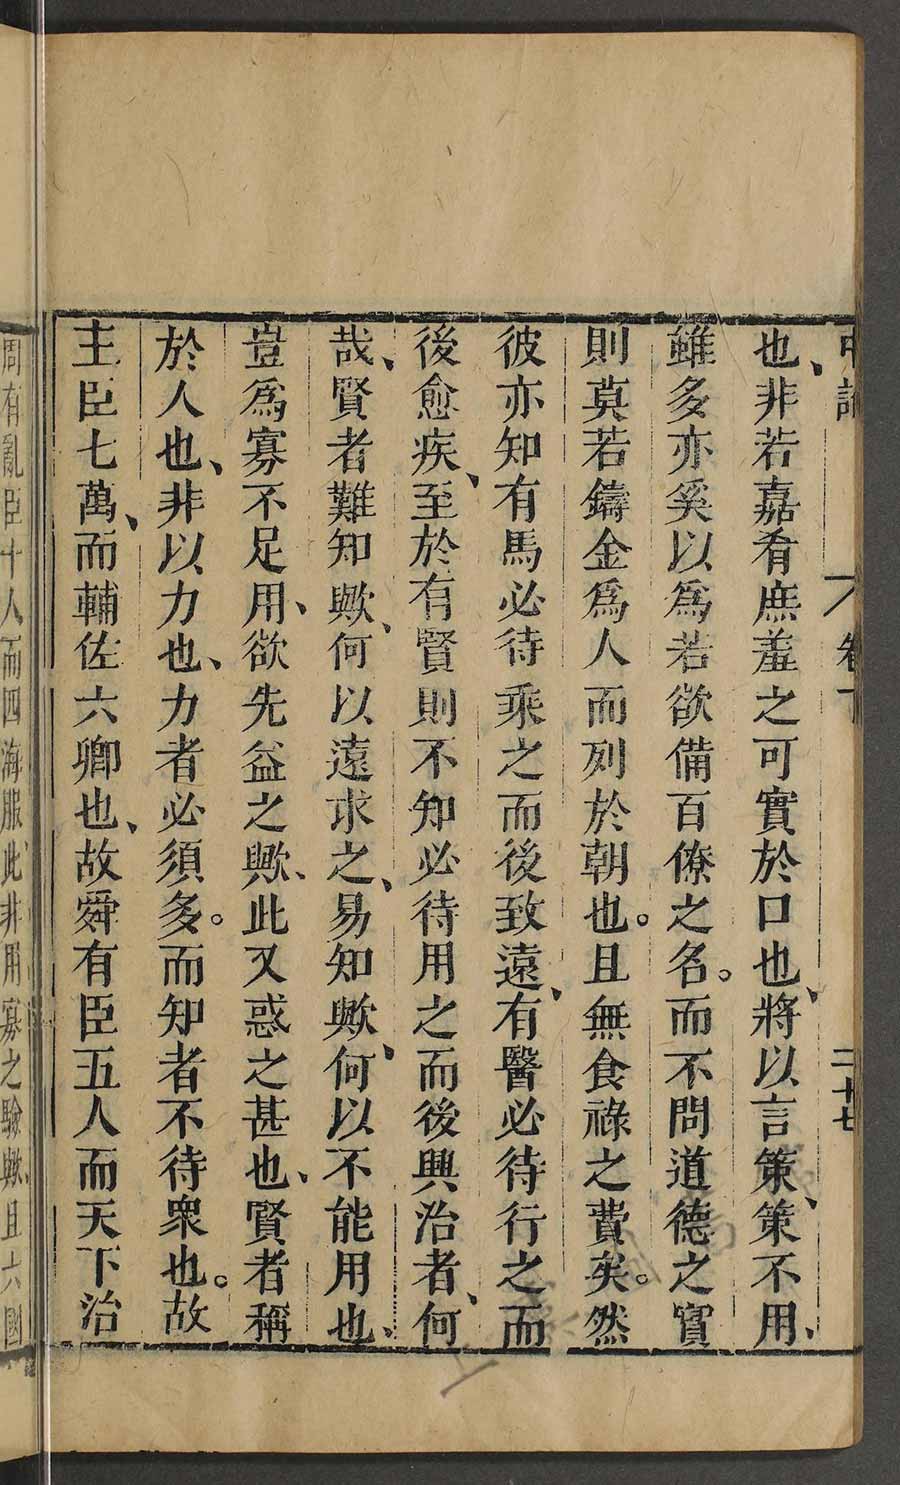 中論 卷下 二十七
也、非若嘉肴庶羞之可實於口也、將以言策、策不用、
雖多亦奚以爲若欲備百僚之名。而不問道德之實
則莫若鑄金爲人而列於朝也。且無食祿之費矣。然
彼亦知有馬必待乘之而後致遠、有醫必待行之而
後愈疾、至於有賢則不知必待用之而後興治者、何
哉、賢者難知歟、何以遠求之、易知歟、何以不能用也、
豈爲寡不足用、欲先益之歟、此又惑之甚也、賢者稱
於人也、非以力也、力者必須多。而知者不待衆也。故
王臣七萬、而輔佐六卿也、故舜有臣五人而天下治
周有亂臣十人而四海服此非用寡之驗歟、且六國